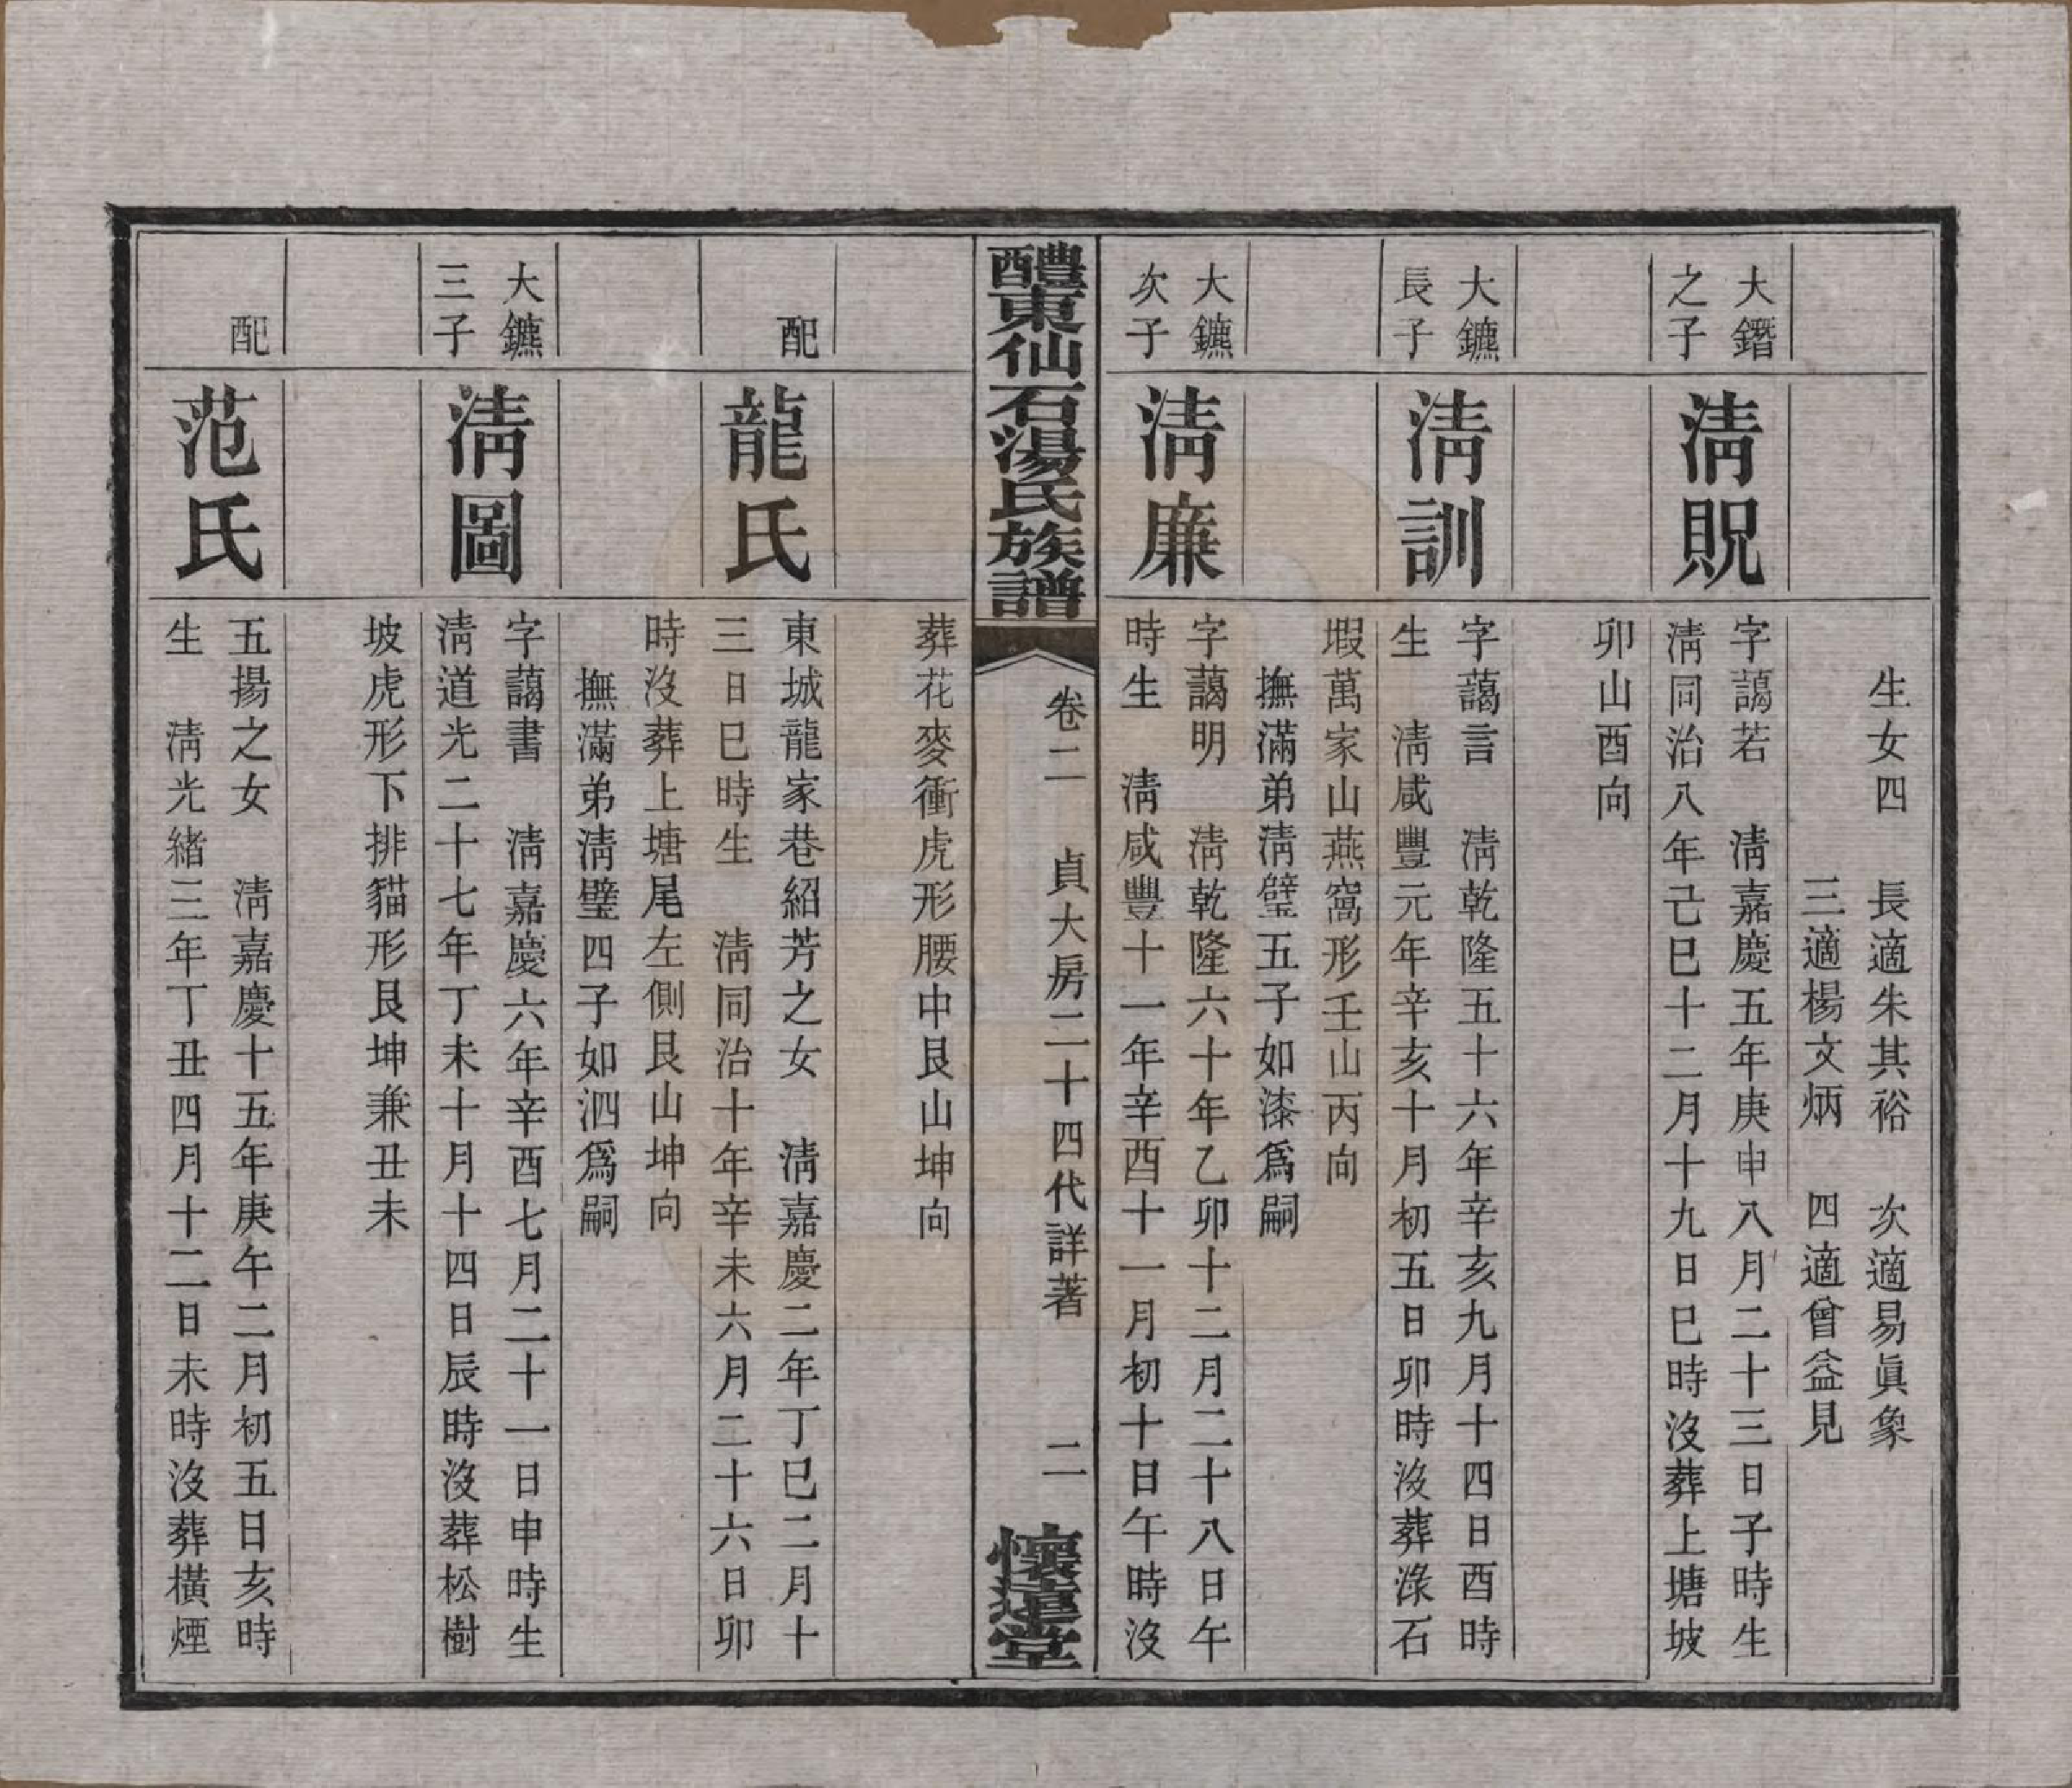 生女四　長適朱其裕　次適易眞象
三適楊文炳　四適曾益見
大鐕
之子
淸貺
字藹若　淸嘉慶五年庚申八月二十三日子時生
淸同治八年己巳十二月十九日巳時沒葬上塘坡
卯山酉向
大鑣
長子
淸訓
字藹言　淸乾隆五十六年辛亥九月十四日酉時
生　淸咸豐元年辛亥十月初五日卯時沒葬淥石
塅萬家山燕窩形壬山丙向
撫滿弟淸璧五子如漆爲嗣
大鑣
次子
淸廉
字藹明　淸乾隆六十年乙卯十二月二十八日午
時生　淸咸豐十一年辛酉十一月初十日午時沒
醴東仙石湯氏族譜
卷二　貞大房二十四代詳著　二
懷遠堂
葬花麥衝虎形腰中艮山坤向
配
龍氏
東城龍家巷紹芳之女　淸嘉慶二年丁巳二月十
三日巳時生　淸同治十年辛未六月二十六日卯
時沒葬上塘尾左側艮山坤向
撫滿弟淸璧四子如泗爲嗣
大鑣
三子
淸圖
字藹書　淸嘉慶六年辛酉七月二十一日申時生
淸道光二十七年丁未十月十四日辰時沒葬松樹
坡虎形下排貓形艮坤兼丑未
配
范氏
五揚之女　淸嘉慶十五年庚午二月初五日亥時
生　淸光緖三年丁丑四月十二日未時沒葬橫煙